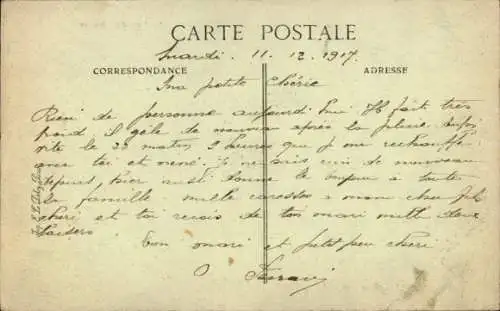 CARTE POSTALE
mardi. 11. 12. 1917.
CORRESPONDANCE
ADRESSE
Ma petite Chérie
Rien de personne aujourd'hui. Il fait très
froid il gèle de nouveau après la pluie
vite le 28 matin 9 heures que j me réchauffe
avec toi et mémé. Je ne sais rien de nouveau
depuis hier aussi donne le bonjour à toute
la famille. mille caresses a mon cher
chéri et toi reçois de ton mari mille doux
baisers.
Ton mari et petit peu chéri